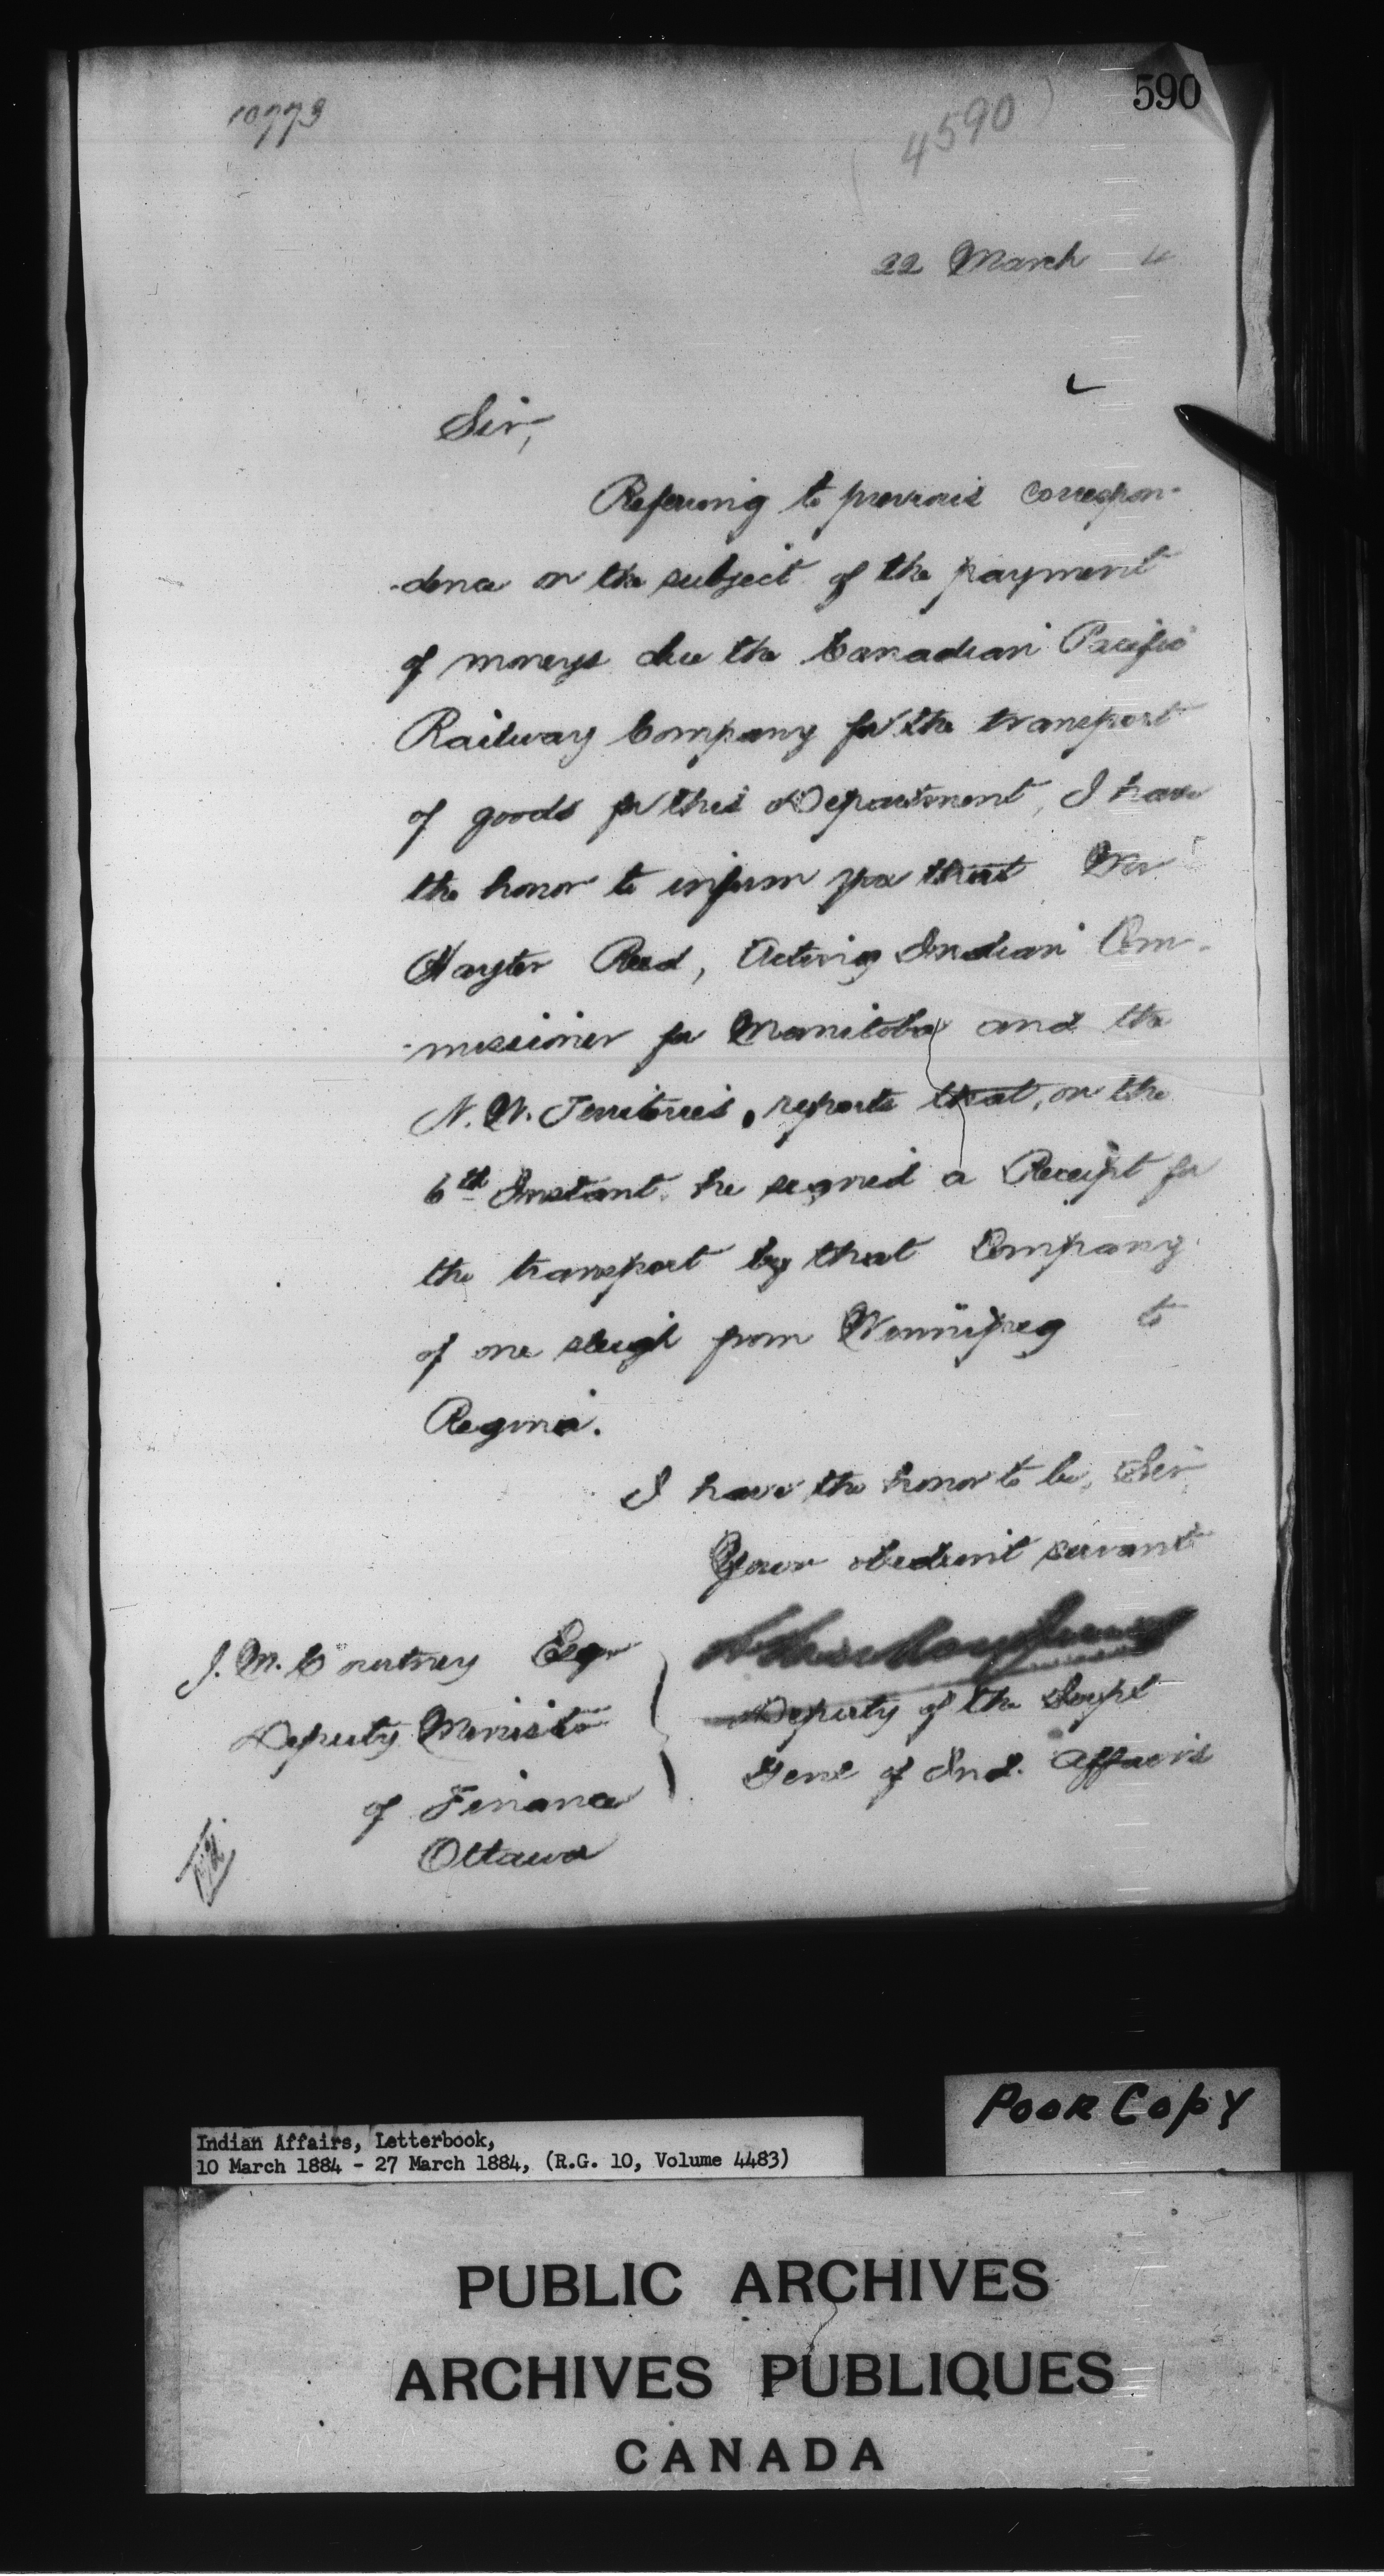 590
10773
4590
22 March 4
Sir,
Referring to previous correspon-
-dence on the subject of the payment
of moneys due the Canadian Pacific
Railway Company for the transport
of goods for this Department, I have
the honor to inform you that Mr
Hayter Reed, Acting Indian Com-
-missioner for Manitoba and the
N. W. Territories, reports that, on the
6th Instant, he signed a Receipt for
the transport by that Company
of one sleigh from Winnipeg to
Regina.
I have the honor to be, Sir
Your obedient servant
J. M. Courtney Esqr
Deputy Minister
of Finance
Ottawa
Deputy of the Supt
Genl of Ind. Affairs
POOR COPY
Indian Affairs, Letterbook,
10 March 1884 - 27 March 1884, (R.G. 10, Volume 4483)
PUBLIC ARCHIVES
ARCHIVES PUBLIQUES
CANADA